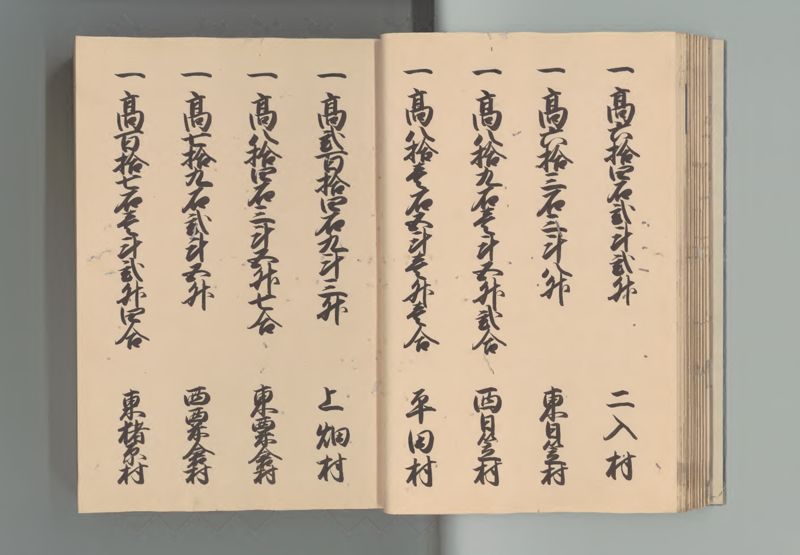 一高六拾四石弐斗弐升 二入村
一高六拾三石三斗八升 東日笠村
一高八拾九石壱斗五升弐合 西日笠村
一高八拾壱石五斗壱升壱合 平田村
一高弐百拾四石九斗三升 上畑村
一高八拾四石三斗五升七合 東粟倉村
一高七拾九石弐斗五升 西粟倉村
一高百拾七石壱斗弐升四合 東楮原村